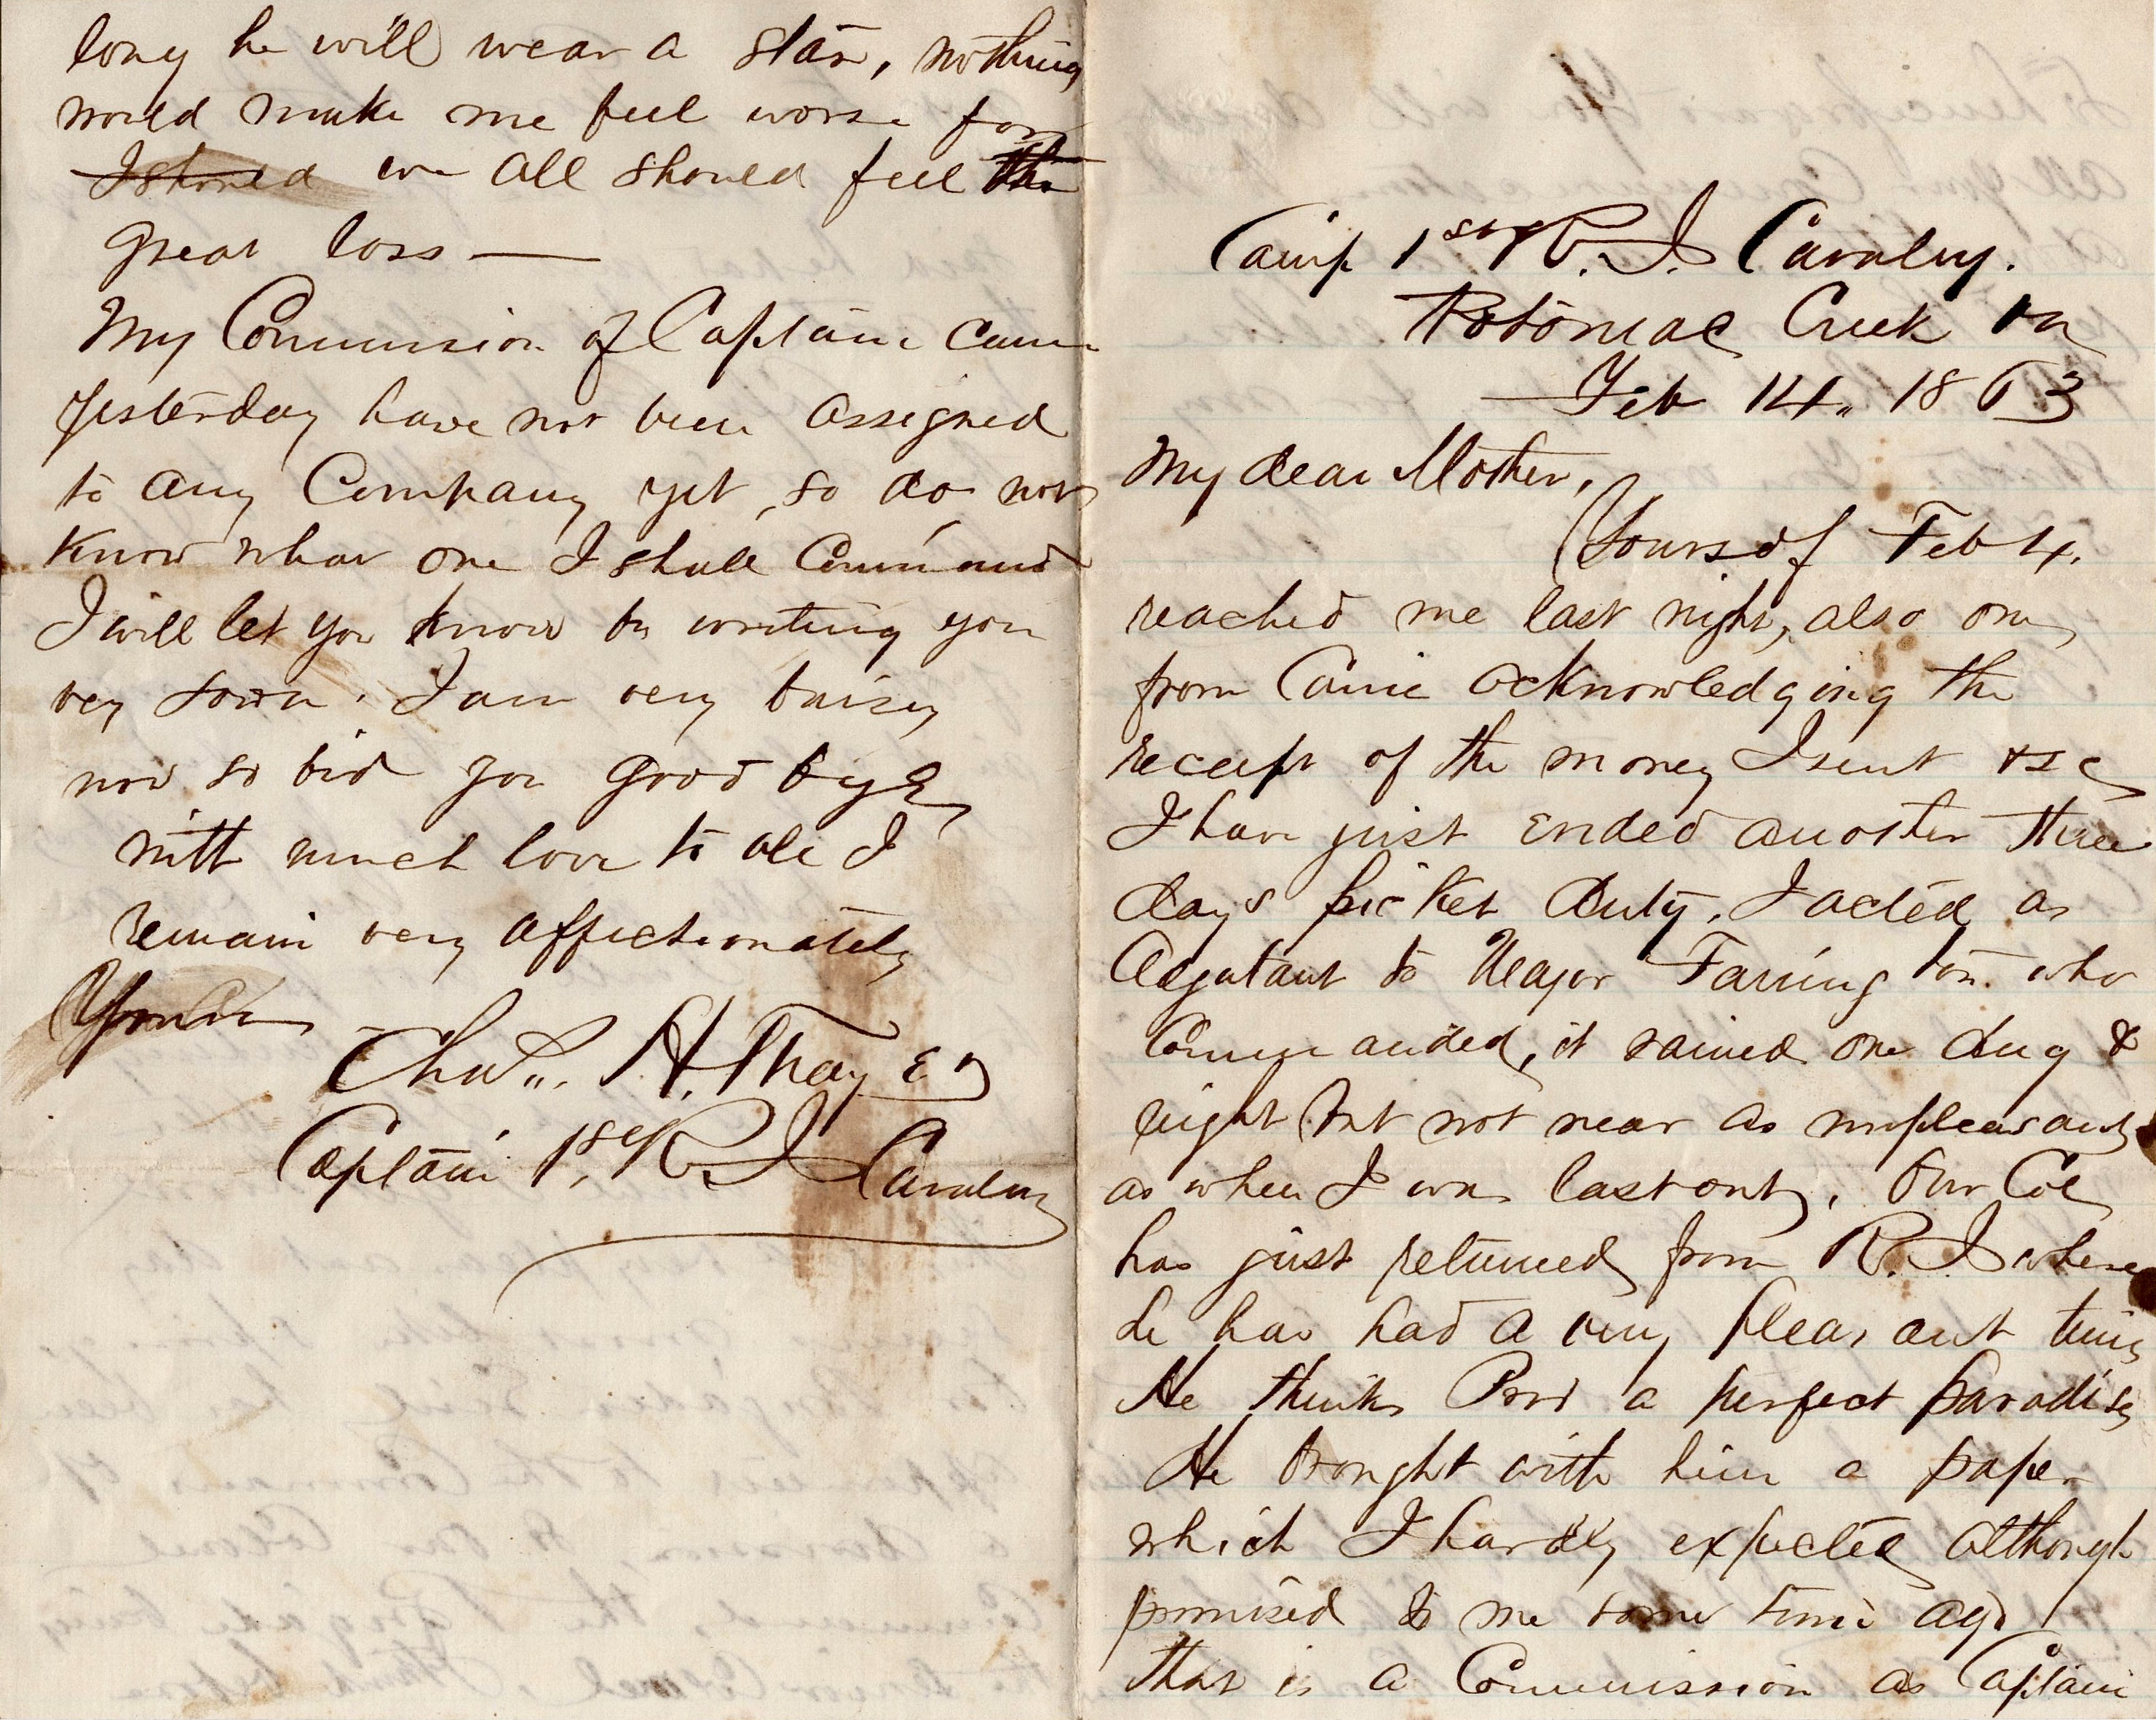 long he will wear a star, nothing
would make me feel worse for
I should we all should feel the
great loss —
My Commission of Captain came
yesterday have not been assigned
to any Company yet, so do not
know what one I shall Command
I will let you know by writing you
very soon. I am very buisy
now so bid you good bye
with much love to all I
remain very affectionately
Yours
Chas. H. Thayer
Captain 1st R I Cavalry
Camp 1st R. I. Cavalry.
Potomac Creek Va
Feb 14. 1863
My dear Mother,
Yours of Feb 4.
reached me last night, also one
from Carrie acknowledging the
receipt of the money I sent &c
I have just ended another three
days picket duty. I acted as
Adjutant to Major Farrington who
Commanded, it rained one day &
night but not near as unpleasant
as when I was last out. Our Col
has just returned from R. I where
he has had a very pleasant time
He thinks Prov a perfect paradise
He brought with him a paper
which I hardly expected although
promised to me some time ago
that is a Commission as Captain